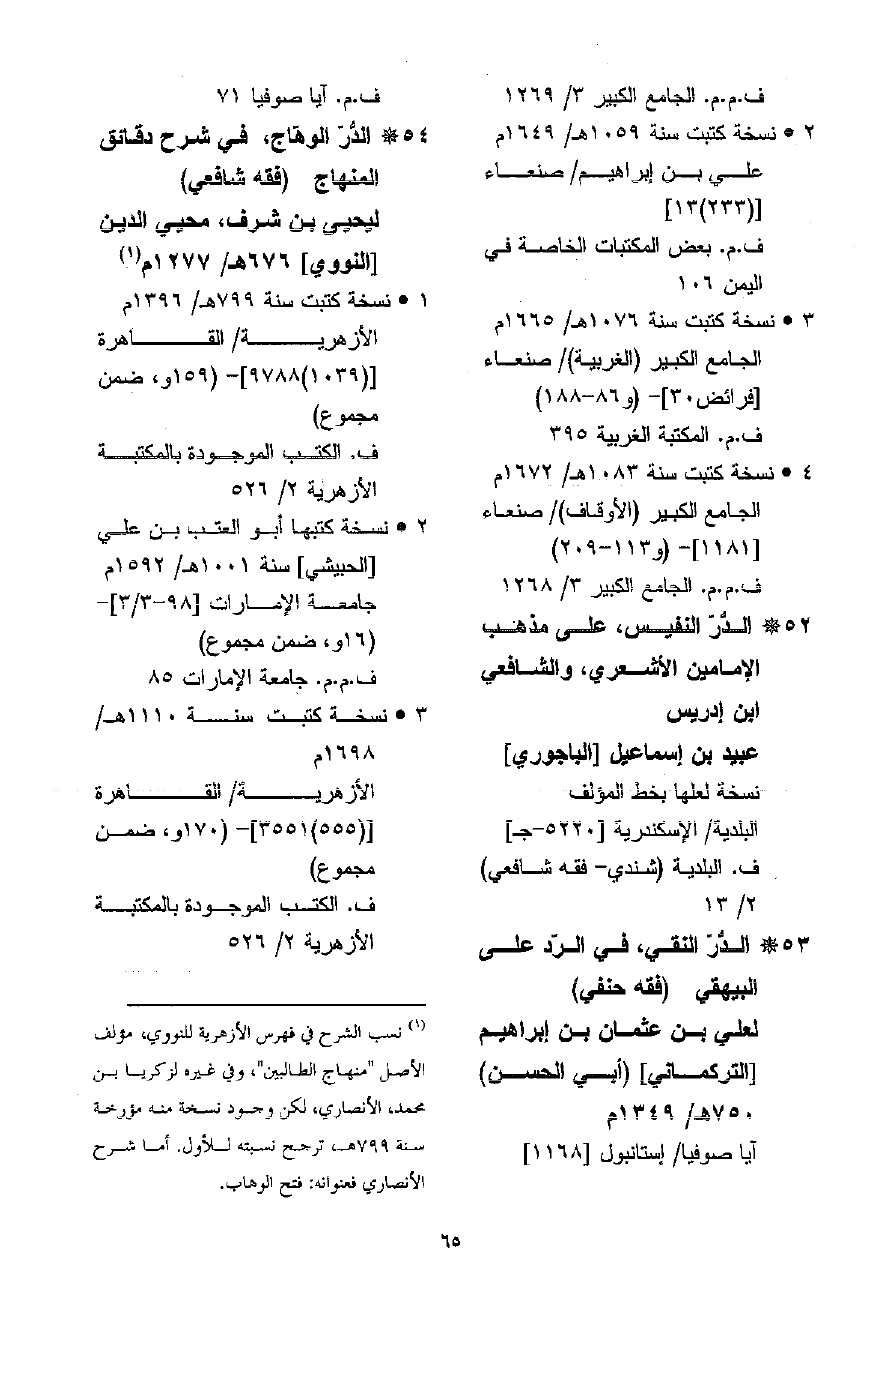 ف.م.م. الجامع الكبير ٣/ ١٢٦٩
٢ • نسخة كتبت سنة ١٠٥٩هـ/ ١٦٤٩م
علي بن إبراهيم/ صنعاء
[(٢٣٣)١٣]
ف.م. بعض المكتبات الخاصة في
اليمن ١٠٦
٣ • نسخة كتبت سنة ١٠٧٦هـ/ ١٦٦٥م
الجامع الكبير (الغربية)/ صنعاء
[فرائض٣٠]- (و٨٦-١٨٨)
ف.م. المكتبة الغربية ٣٩٥
٤ • نسخة كتبت سنة ١٠٨٣هـ/ ١٦٧٢م
الجامع الكبير (الأوقاف)/ صنعاء
[١١٨١]- (و١١٣-٢٠٩)
ف.م.م. الجامع الكبير ٣/ ١٢٦٨
٥٢ * الدُّرّ النفيس، على مذهب
الإمامين الأشعري، والشافعي
ابن إدريس
عبيد بن إسماعيل [الباجوري]
نسخة لعلها بخط المؤلف
البلدية/ الإسكندرية [٥٢٢٠-جـ]
ف. البلدية (شندي- فقه شافعي)
٢/ ١٣
٥٣ * الدُّرّ النقي، في الردّ على
البيهقي (فقه حنفي)
لعلي بن عثمان بن إبراهيم
[التركماني] (أبي الحسن)
٧٥٠هـ/ ١٣٤٩م
آيا صوفيا/ إستانبول [١١٦٨]
ف.م. آيا صوفيا ٧١
٥٤ * الدُّرّ الوهّاج، في شرح دقائق
المنهاج (فقه شافعي)
ليحيي بن شرف، محيي الدين
[النووي] ٦٧٦هـ/ ١٢٧٧م(١)
١ • نسخة كتبت سنة ٧٩٩هـ/ ١٣٩٦م
الأزهرية/ القاهرة
[(١٠٣٩)٩٧٨٨]- (١٥٩و، ضمن
مجموع)
ف. الكتب الموجودة بالمكتبة
الأزهرية ٢/ ٥٢٦
٢ • نسخة كتبها أبو العتب بن علي
[الحبيشي] سنة ١٠٠١هـ/ ١٥٩٢م
جامعة الإمارات [٩٨-٣/٣]-
(١٦و، ضمن مجموع)
ف.م.م. جامعة الإمارات ٨٥
٣ • نسخة كتبت سنة ١١١٠هـ/
١٦٩٨م
الأزهرية/ القاهرة
[(٥٥٥)٣٥٥١]- (١٧٠و، ضمن
مجموع)
ف. الكتب الموجودة بالمكتبة
الأزهرية ٢/ ٥٢٦
(١) نسب الشرح في فهرس الأزهرية للنووي، مؤلف
الأصل "منهاج الطالبين"، وفي غيره لزكريا بن
محمد، الأنصاري، لكن وجود نسخة منه مؤرخة
سنة ٧٩٩هـ، ترجح نسبته للأول. أما شرح
الأنصاري فعنوانه: فتح الوهاب.
٦٥